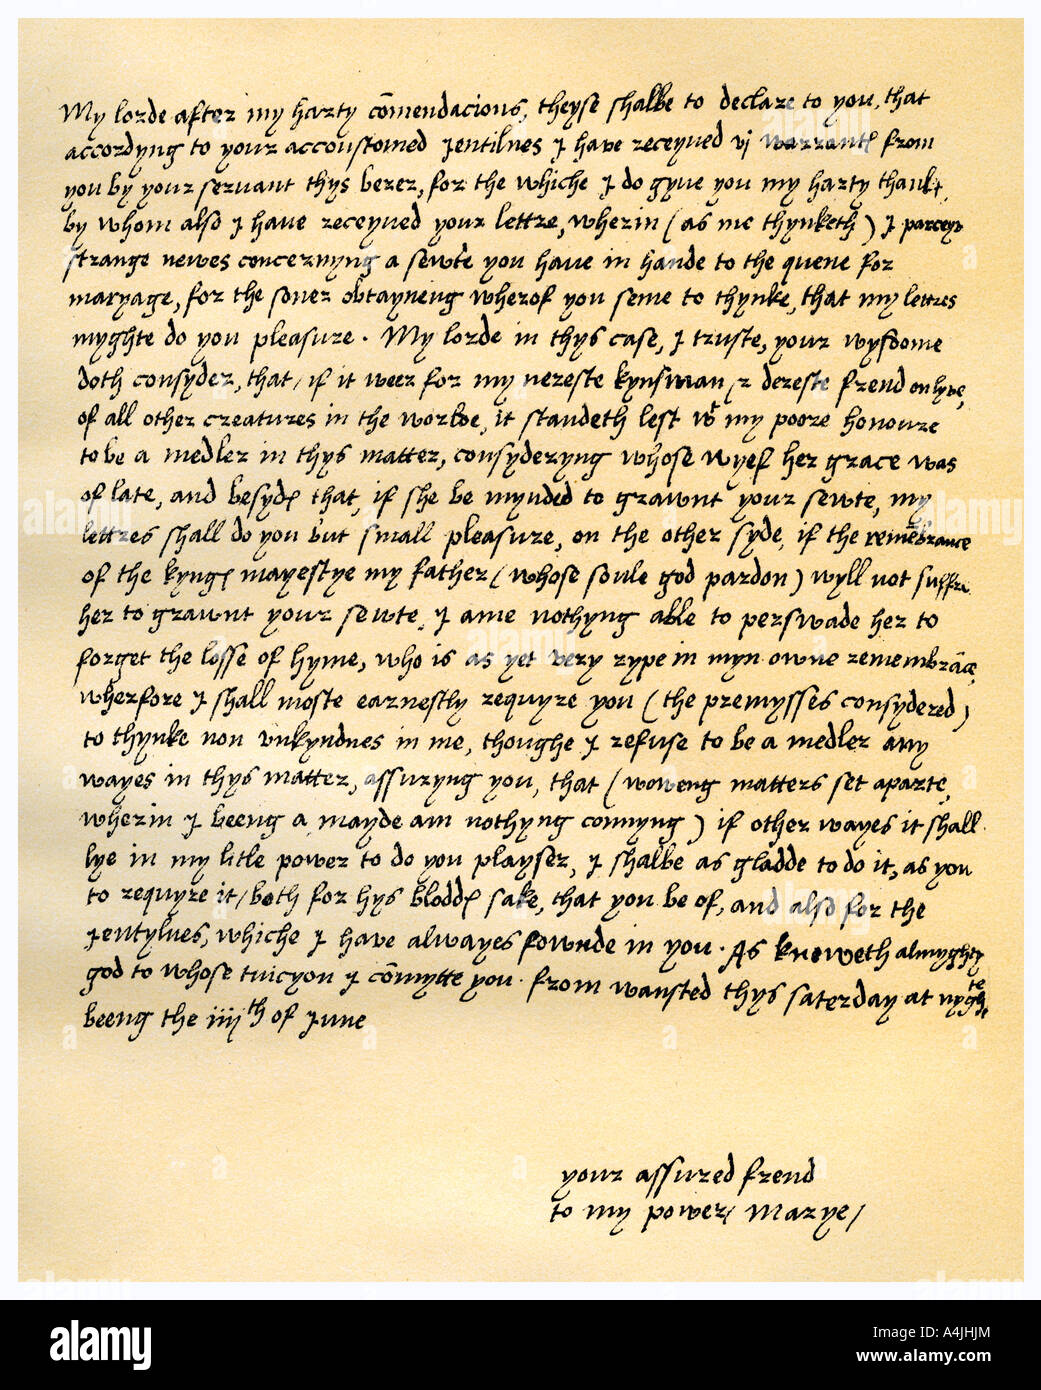 My lorde after my harty cōmendacions, theyse shalbe to declare to you, that
accordyng to your accoustomed Jentilnes I have receyued vj warrantꝭ from
you by your servant thys berer, for the whiche I do gyve you my harty thankꝭ,
by whom also I have receyued your lettre, wherin (as me thynketh) I parceyv
strange newes concernyng a sewte you have in hande to the quene for
maryage, for the soner obtayneng wherof you seme to thynke, that my lettres
myghte do you pleasure. My lorde in thys case, I truste, your wysdome
doth consyder, that, if it weer for my nereste kynsman, & dereste frend onlyve,
of all other creatures in the worlde, it standeth lest wt my poore honoure
to be a medler in thys matter, consyderyng whose wyef her grace was
of late, and besydꝭ that, if she be mynded to grawnt your sewte, my
lettres shall do you but small pleasure, on the other syde, if the remembrance
of the kyngꝭ mayestye my father (whose soule god pardon) wyll not suffre
her to grawnt your sewte, I ame nothyng able to perswade her to
forget the losse of hyme, who is as yet very rype in myn owne remembrāce,
wherfore I shall moste earnestly requyre you (the premysses consydered)
to thynke non vnkyndnes in me, thoughe I refuse to be a medler any
wayes in thys matter, assuryng you, that (woweng matters set aparte,
wherin I beeng a mayde am nothyng connyng) if other wayes it shall
lye in my litle power to do you playser, I shalbe as gladde to do it, as you
to requyre it, both for hys bloddꝭ sake, that you be of, and also for the
Jentylnes, whiche I have alwayes fownde in you. As knoweth almyghty
god to whose tuicyon I cōmytte you. from wansted thys saterday at nyghte,
beeng the iiijth of June
your assured frend
to my power, Marye,
alamy
Image ID: A4JHJM
www.alamy.com